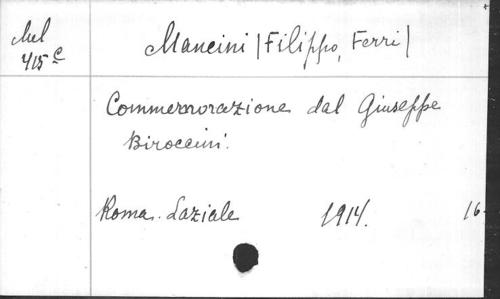 Mel
415 c
Mancini (Filippo, Ferri)
Commemorazione dal Giuseppe
Biroccini.
Roma. Laziale 1914. 16.